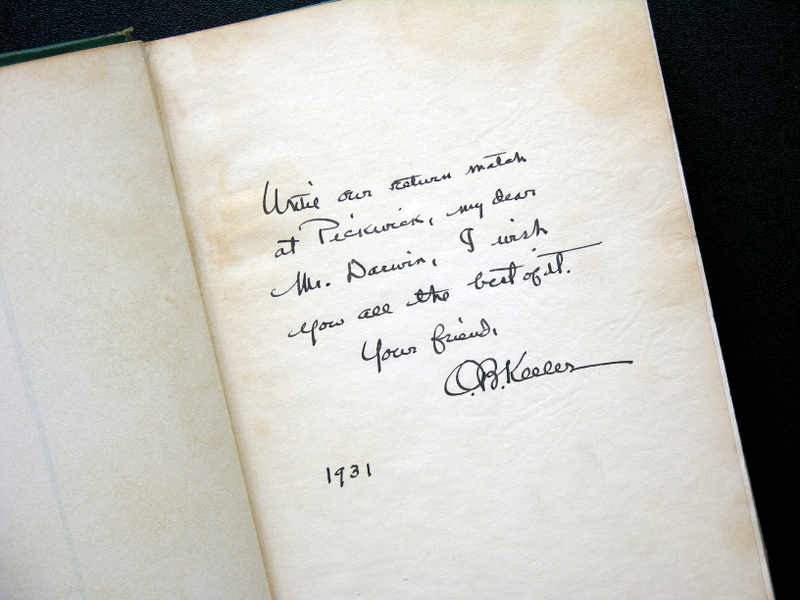 Until our return match
at Pickwick, my dear
Mr. Darwin, I wish
you all the best of it.
Your friend,
O.B. Keeler
1931